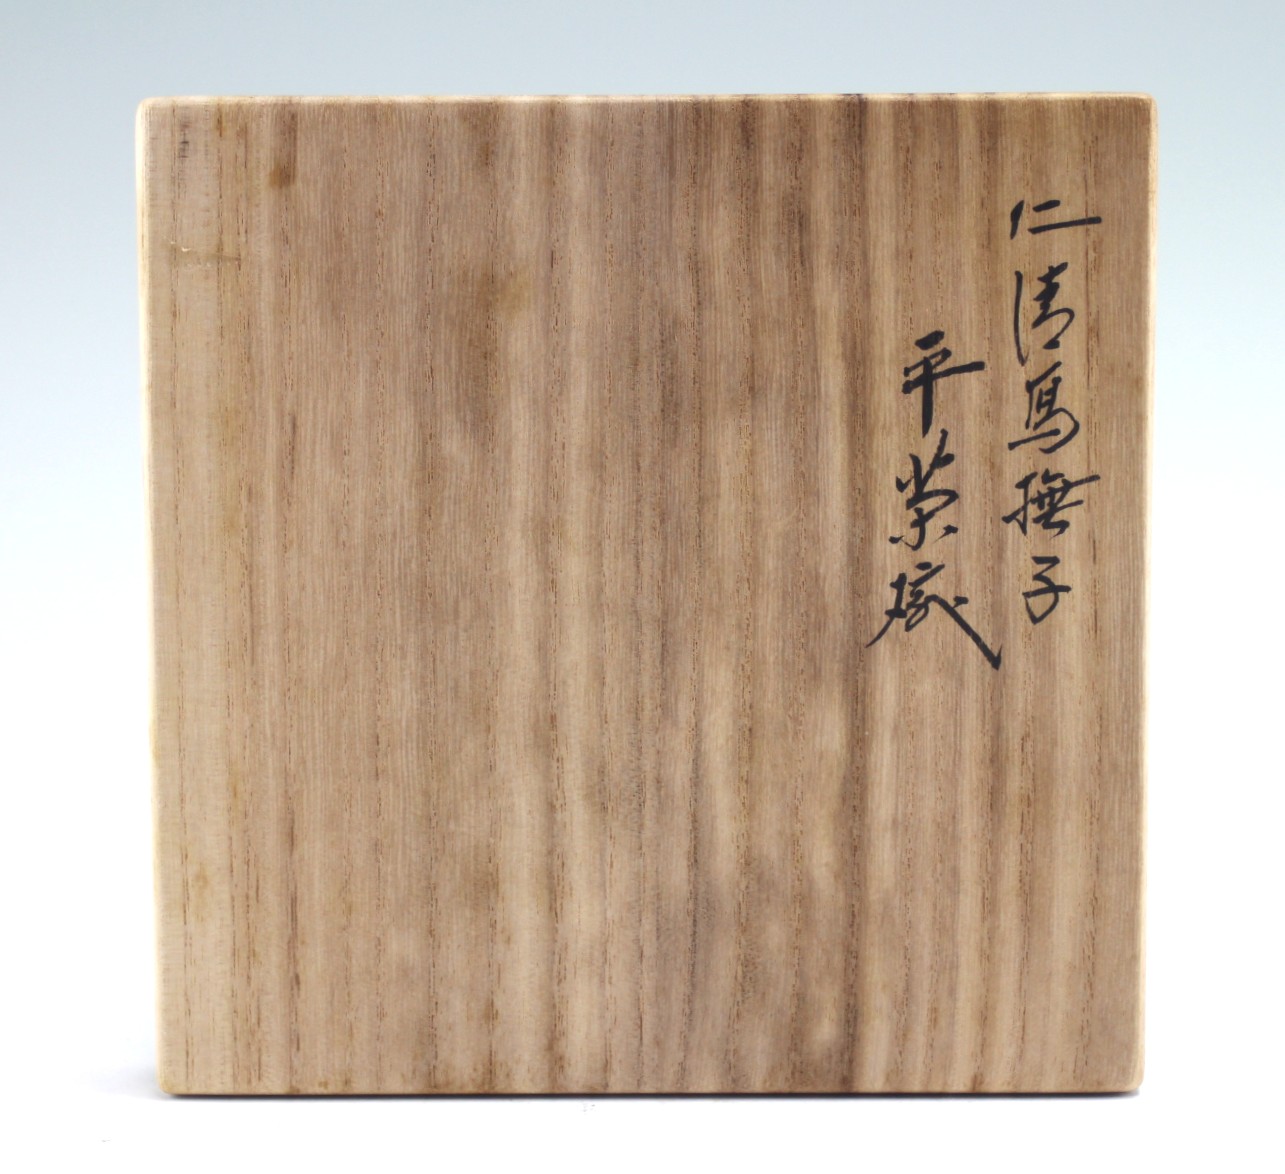 仁清写撫子
平茶碗